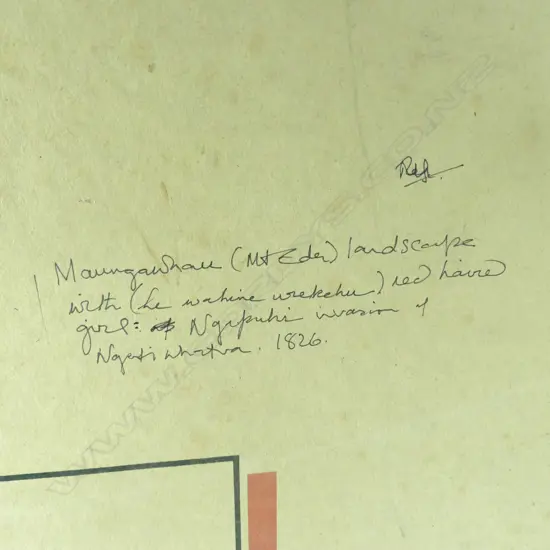 Maungawhau (Mt Eden) landscape
with (he wahine urekehu) red haired
girl: Ngapuhi invasion of
Ngati Whatua. 1826.